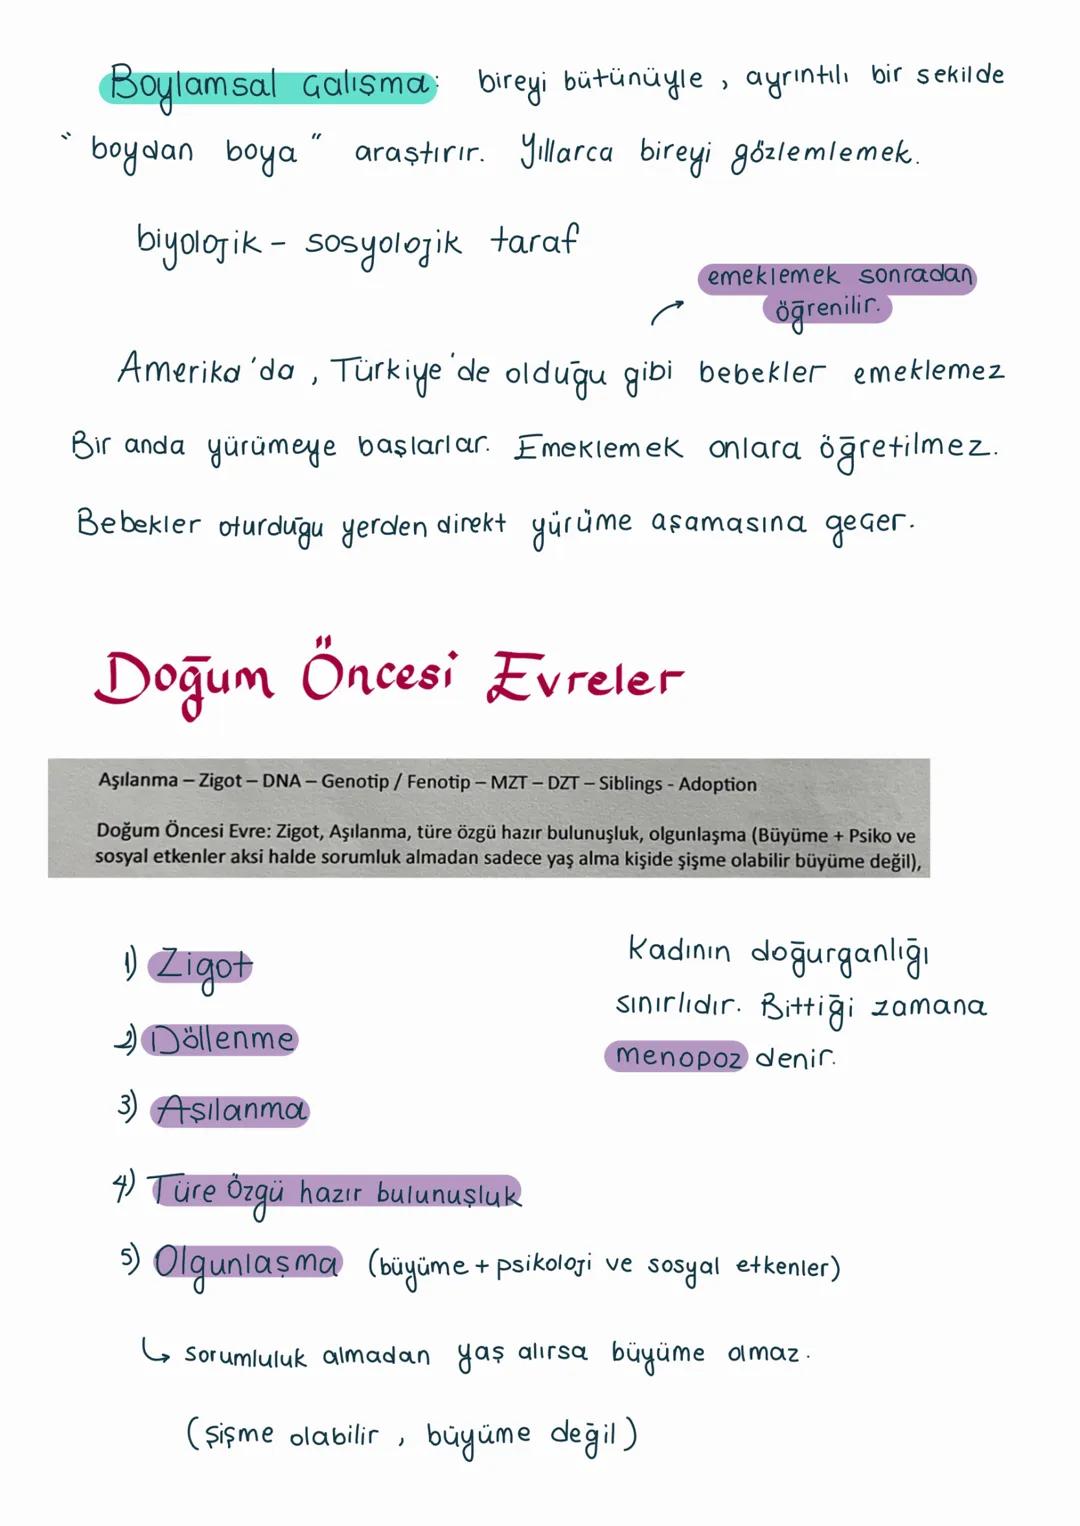 Boylamsal Çalışma: bireyi bütünüyle, ayrıntılı bir şekilde
"boydan boya" araştırır. Yıllarca bireyi gözlemlemek.
biyolojik - sosyolojik taraf
emeklemek sonradan
öğrenilir.
Amerika'da, Türkiye'de olduğu gibi bebekler emeklemez
Bir anda yürümeye başlarlar. Emeklemek onlara öğretilmez.
Bebekler oturduğu yerden direkt yürüme aşamasına geçer.
Doğum Öncesi Evreler
Aşılanma – Zigot – DNA – Genotip / Fenotip – MZT – DZT – Siblings - Adoption
Doğum Öncesi Evre: Zigot, Aşılanma, türe özgü hazır bulunuşluk, olgunlaşma (Büyüme + Psiko ve
sosyal etkenler aksi halde sorumluk almadan sadece yaş alma kişide şişme olabilir büyüme değil),
1) Zigot
2) Döllenme
3) Aşılanma
4) Türe Özgü hazır bulunuşluk
5) Olgunlaşma (büyüme + psikoloji ve sosyal etkenler)
↳ sorumluluk almadan yaş alırsa büyüme olmaz.
(şişme olabilir, büyüme değil)
Kadının doğurganlığı
sınırlıdır. Bittiği zamana
menopoz denir.